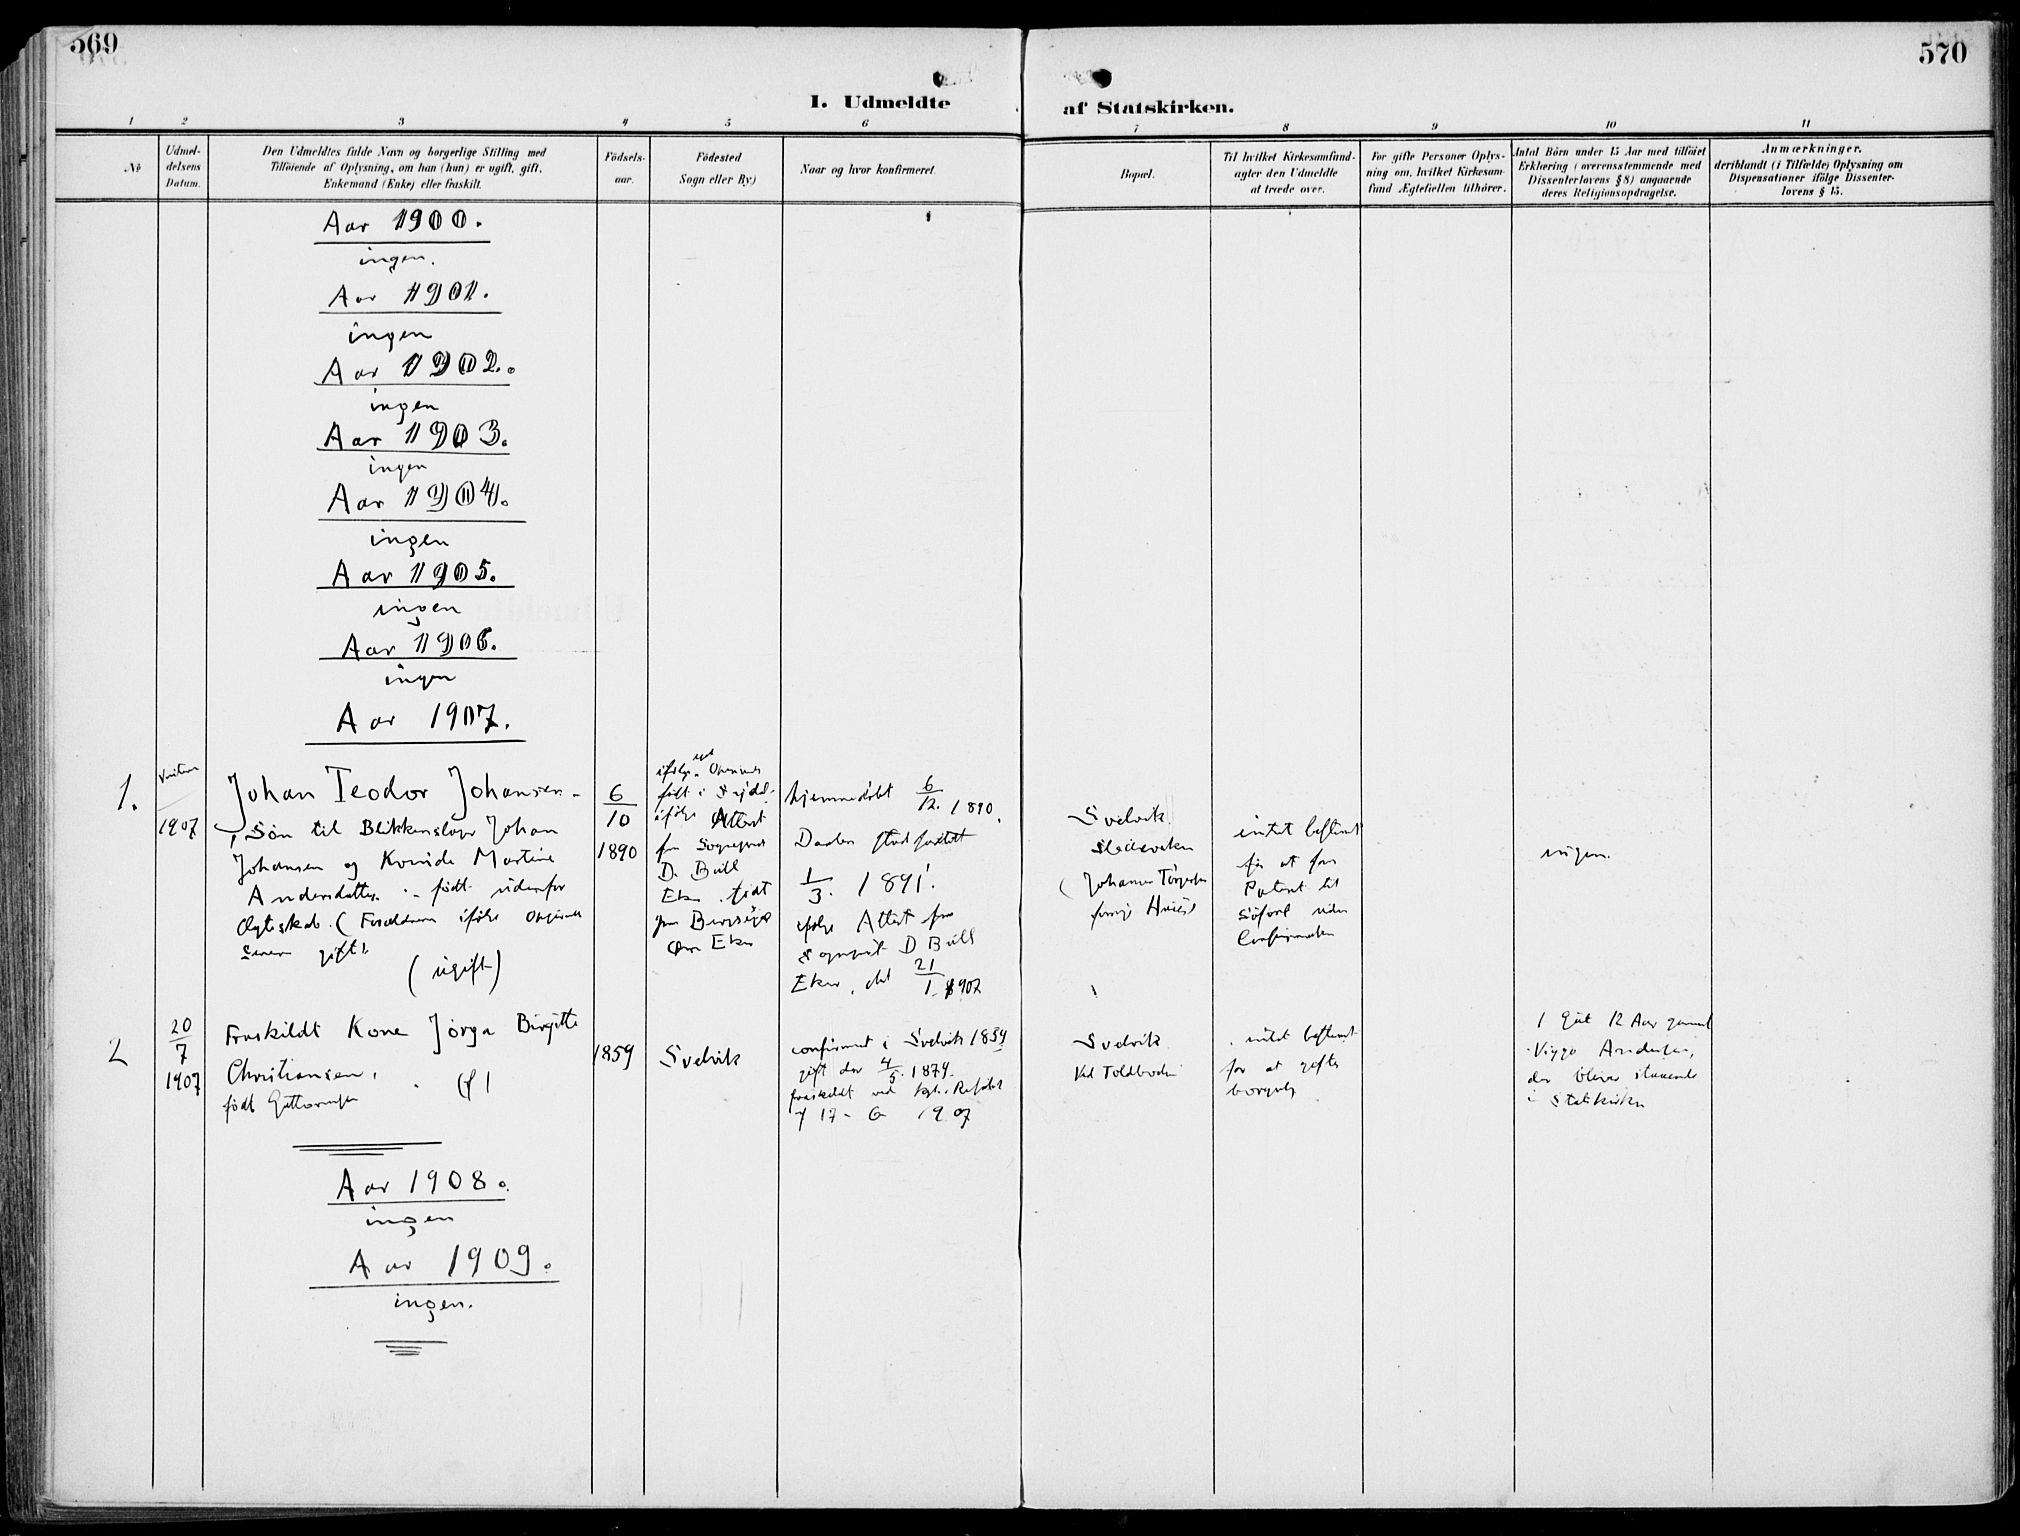 569
570
I. Udmeldte
af Statskirken.
1 2 3 4 5 6
7 8 9 10 11
No
Udmel-
delsens
Datum.
Den Udmeldtes fulde Navn og borgerlige Stilling med
Tilföiende af Oplysning, om han (hun) er ugift, gift,
Enkemand (Enke) eller fraskilt.
Födsels-
aar.
Födested
Sogn eller By)
Naar og hvor konfirmeret.
Bopæl.
Til hvilket Kirkesamfund-
agter den Udmeldte
at træde over.
For gifte Personer Oplys-
ning om, hvilket Kirkesam-
fund Ægtefællen tilhörer.
Antal Börn under 15 Aar med tilföiet
Erklæring (overensstemmende med
Dissenterlovens § 8) angaaende
deres Religionsopdragelse.
Anmærkninger,
deriblandt (i Tilfælde) Oplysning om
Dispensationer ifölge Dissenter-
lovens § 15.
Aar 1900.
ingen.
Aar 1901.
ingen
Aar 1902.
ingen
Aar 1903.
ingen
Aar 1904.
ingen
Aar 1905.
ingen
Aar 1906.
ingen
Aar 1907.
1.
1907
Johan Teodor Johansen
Søn til Blikkenslager Johan
Johansen og Kvinde Martine
Andersdatter født udenfor
Ægteskab. (Forældrene ifølge
senere gift).
(ugift)
6
10
1890
født i
ifølge Attest
fra Sogneprest
D. Bull
Eker
Eker
hjemmedøbt 6/12. 1890.
Daaben stadfæstet
1/3. 1891.
ifølge Attest fra
Sogneprest D Bull
Eker, dat 21/1 1907
Svelvik
(Johannes
intet bestemt
for at faa
Patent til
uden
Confirmation
ingen.
2
20
7
1907
Fraskildt Kone Jørga Birgitte
Christiansen,
født Guttormsen
1859
Svelvik
confirmert i Svelvik
gift der 4/5. 1879.
fraskildt ved kgl.
af 17 - 6 1907
Svelvik
Ved Toldboden
intet bestemt
for at gifte
borgerlig
1 Gut 12 Aar gammel
Viggo Andersen,
der bliver staaende
i Statskirken
Aar 1908.
ingen
Aar 1909.
ingen.